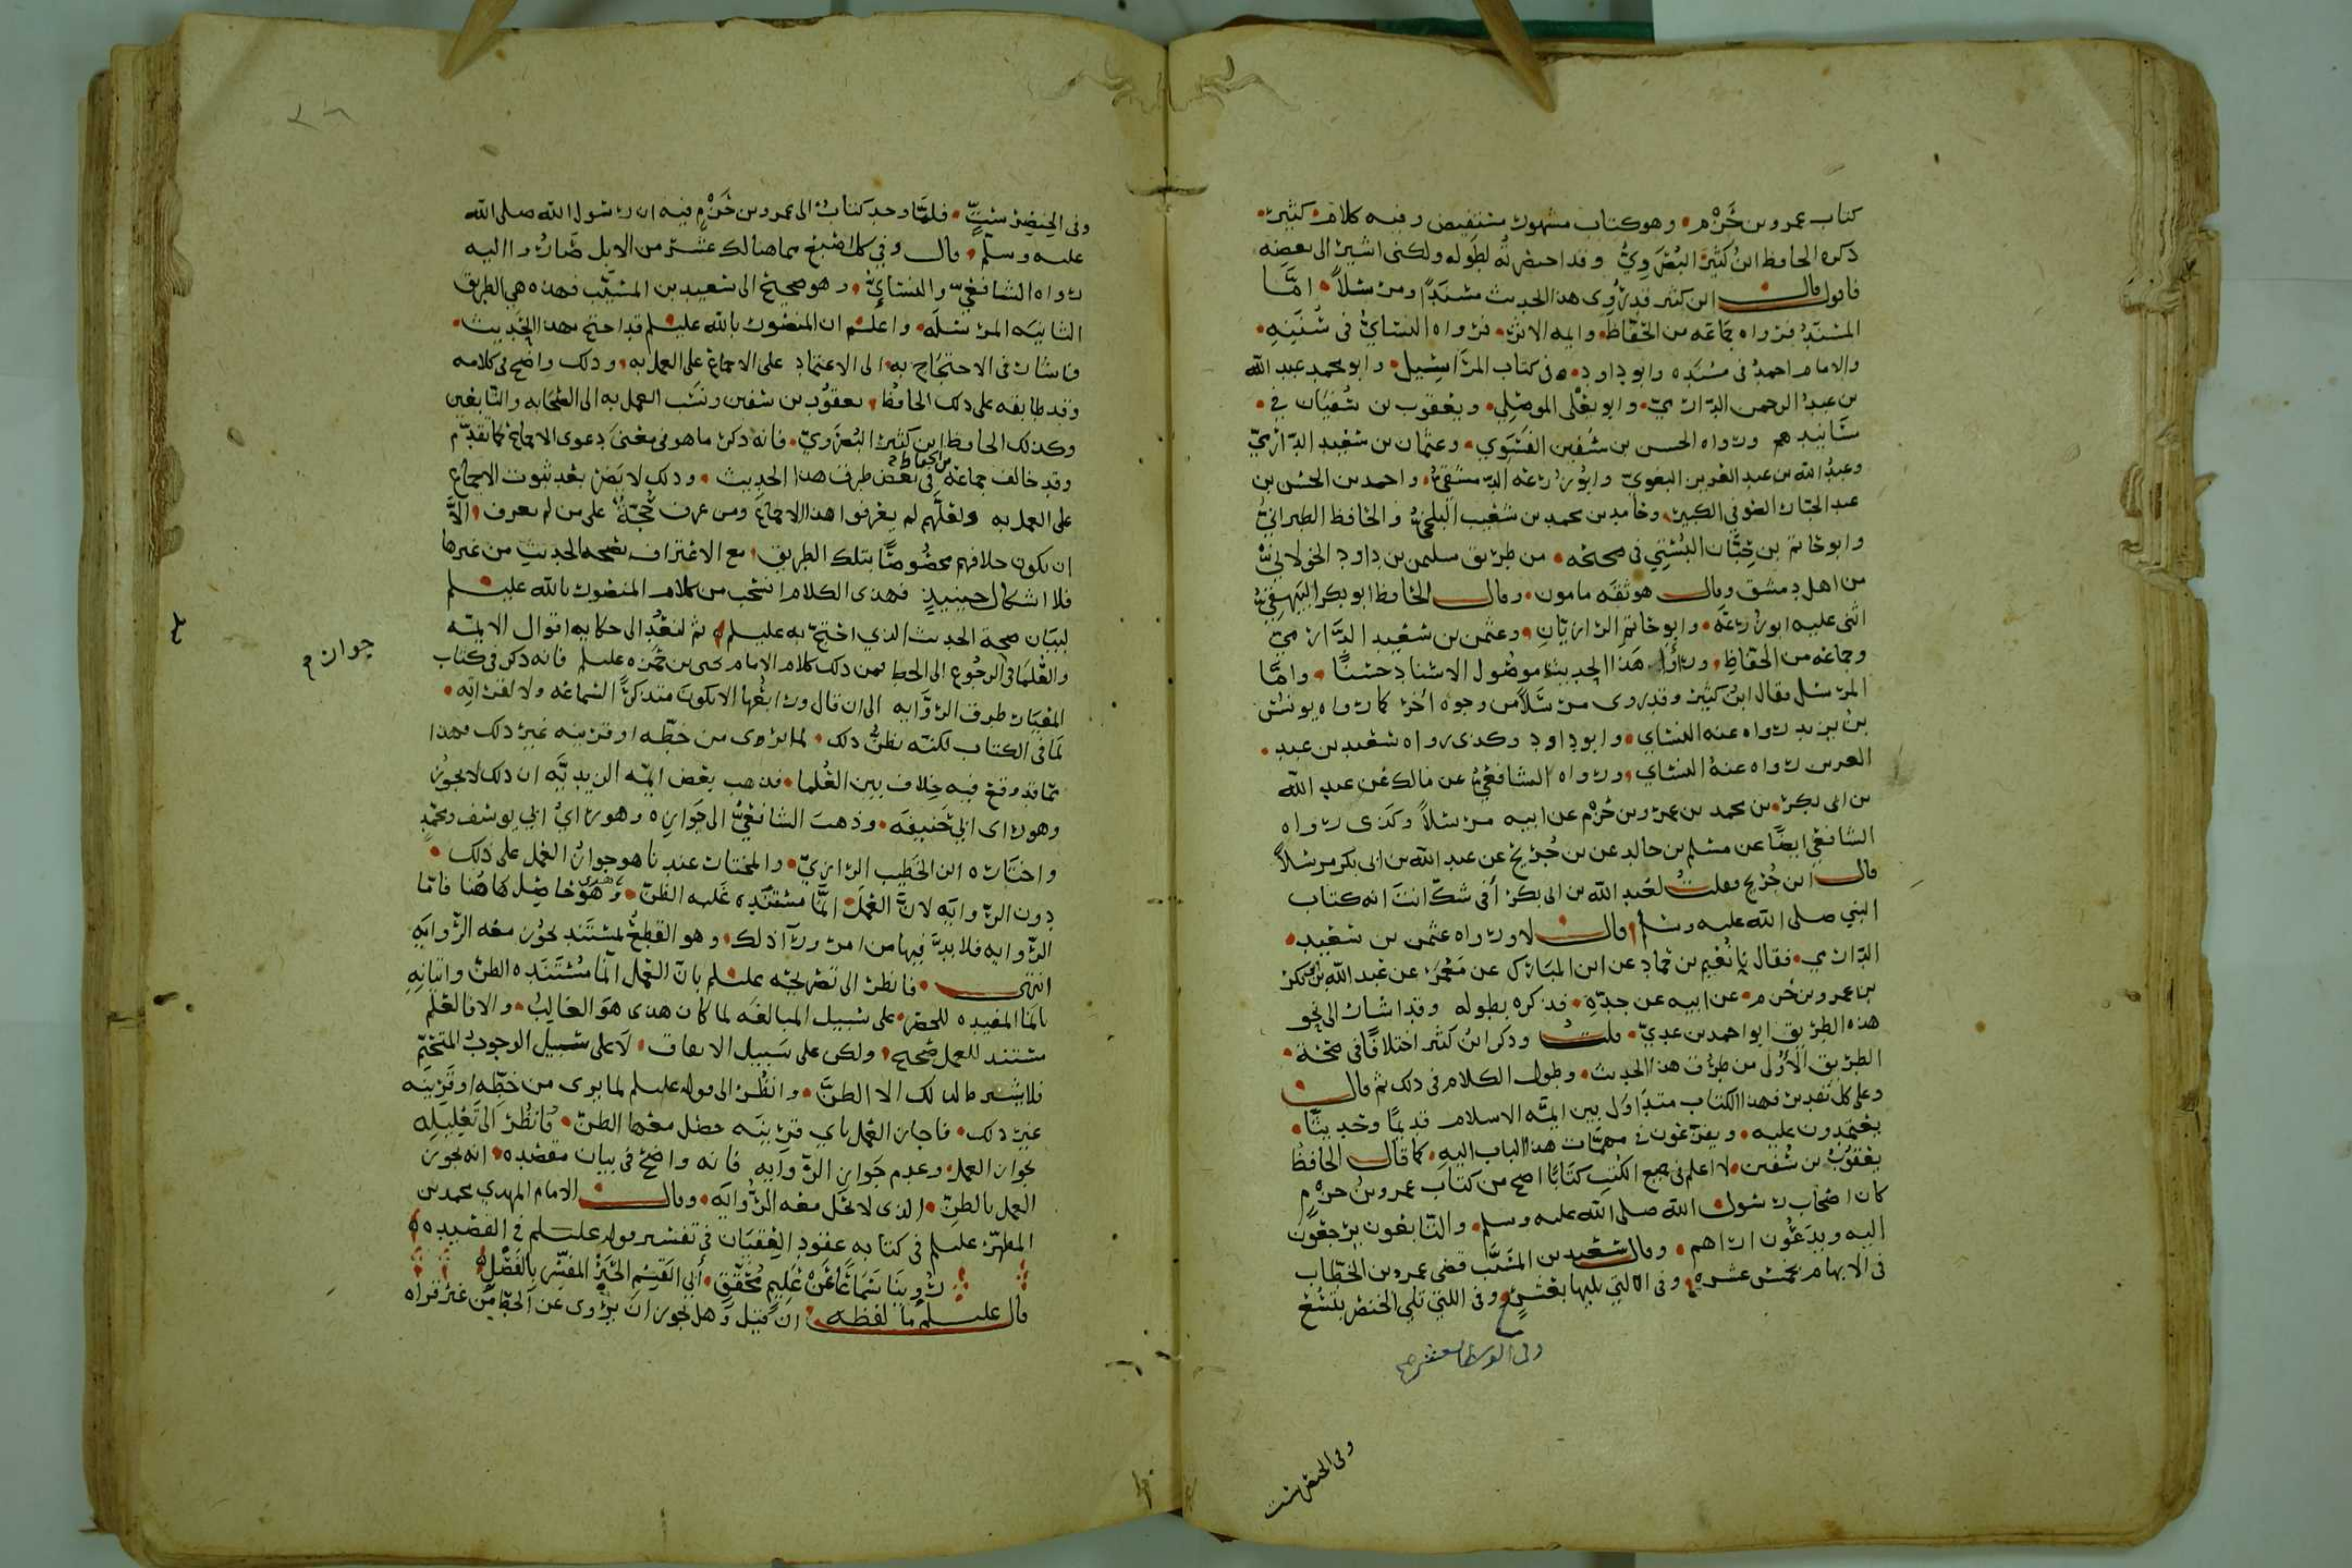 كتاب عمرو بن حزم وهو كتاب مشهور مستفيض وفيه كلام كثير
ذكره الحافظ ابن كثير البصروي وقد اختصرته لطوله ولكني اشير الى بعضه
فاقول قال ابن كثير قد روى هذا الحديث مسندا ومرسلا اما
المسند فرواه جماعه من الحفاظ وايمه الاثر فرواه النسائي في سننه
والامام احمد في مسنده وابو داود في كتاب المراسيل وابو محمد عبد الله
بن عبد الرحمن الدارمي وابو يعلى الموصلي ويعقوب بن سفيان في
مسانيدهم ورواه الحسن بن سفين الفسوي وعثمان بن سعيد الدارمي
وعبد الله بن عبد العزيز البغوي وابو زرعه الدمشقي واحمد بن الحسن بن
عبد الجبار الصوفي الكبير وحامد بن محمد بن شعيب البلخي والحافظ الطبراني
وابو حاتم بن حبان البستي في صحيحه من طريق سليمن بن داود الخولاني
من اهل دمشق وقال هو ثقه مامون وقال الحافظ ابو بكر البيهقي
اثنى عليه ابو زرعه وابو حاتم الرازيان وعثمن بن سعيد الدارمي
وجماعه من الحفاظ وراوا هذا الحديث موصول الاسناد حسنا واما
المرسل فقال ابن كثير وقد روى مرسلا من وجوه اخر كما رواه يونس
بن يزيد رواه عنه النسائي وابو داود وكذى رواه سعيد بن عبد
العزيز رواه عنه النسائي ورواه الشافعي عن مالك عن عبد الله
بن ابي بكر بن محمد بن عمرو بن حزم عن ابيه مرسلا وكذى رواه
الشافعي ايضا عن مسلم بن خالد عن بن جريج عن عبد الله بن ابي بكر مرسلا
قال ابن جريج فقلت لعبد الله بن ابي بكر أفي شك انت انه كتاب
النبي صلى الله عليه وسلم قال لا ورواه عثمن بن سعيد
الدارمي فقال نا نعيم بن حماد عن ابن المبارك عن معمر عن عبد الله بن بكر
بن عمرو بن حزم عن ابيه عن جده فذكره بطوله وقد اشار الى نحو
هذه الطريق ابو احمد بن عدي قلت وذكر ابن كثير اختلافا في صحة
الطريق الأولى من طرق هذا الحديث وطول الكلام في ذلك ثم قال
وعلى كل تقدير فهذا الكتاب متداول بين ايمة الاسلام قديما وحديثا
يعتمدون عليه ويفزعون في مهمات هذا الباب اليه كما قال الحافظ
يعقوب بن سفين لا اعلم في جميع الكتب كتابا اصح من كتاب عمرو بن حزم
كان اصحاب رسول الله صلى الله عليه وسلم والتابعون يرجعون
اليه ويدعون اراهم وقال سعيد بن المسيب قضى عمر بن الخطاب
في الابهام بخمس عشره وفى التي يليها بعشر وفى اللتي تلي الخنصر بتسع
وفى الوسطا بعشر صح
وفى الخنصر بست
وفى الخنصر بست فلما وجد كتاب ال عمرو بن حزم فيه ان رسول الله صلى الله
عليه وسلم قال وفي كل اصبع مما هنالك عشر من الابل صاروا اليه
رواه الشافعي والنسائي وهو صحيح الى سعيد بن المسيب فهذه هي الطريق
الثانيه المرسله واعلم ان المنصور بالله عليلم قد احتج بهذا الحديث
فاشار في الاحتجاج به الى الاعتماد على الاجماع على العمل به وذلك واضح في كلامه
وقد طابقه على ذلك الحافظ يعقوب بن سفين ونسب العمل به الى الصحابه والتابعين
وكذلك الحافظ ابن كثير البصروي فانه ذكر ما هو في معنى دعوى الاجماع كما تقدم
وقد خالف جماعة من الحفاظ في بعض طرق هذا الحديث وذلك لا يضر بعد ثبوت الاجماع
على العمل به ولعلهم لم يعرفوا هذا الاجماع ومن عرف حجة على من لم يعرف الا
ان يكون خلافهم مخصوصا بتلك الطريق مع الاعتراف بصحه الحديث من غيرها
فلا اشكال حينيذ فهذى الكلام انتخب من كلام المنصور بالله عليلم
لبيان صحة الحديث الذي احتج به عليلم ثم لنعد الى حكايه اقوال الايمه
والعلما في الرجوع الى الخط فمن ذلك كلام الامام يحيى بن حمزه عليلم فانه ذكر في كتاب
المعيار طرق الروايه الى ان قال ورابعها الا يكون متذكرا لسماعه ولا لقراته
لما في الكتاب لكنه يظن ذلك لما يرى من خطه او قرينه غير ذلك فهذا
مما قد وقع فيه خلاف بين العلما فذهب بعض ايمه الزيديه ان ذلك لا يجوز
وهو راى ابي حنيفه وذهب الشافعي الى جوازه وهو راي ابي يوسف ومحمد
واختاره ابن الخطيب الرازي والمختار عندنا هو جواز العمل على ذلك
جواز م
دون الروايه لان العمل انما مستنده غلبه الظن وهو حاصل هاهنا فاما
الروايه فلا بد فيها من امر ورآ ذلك وهو القطع بمستند يجوز معه الروايه
انتهى فانظر الى تصريحه عليلم بان العمل انما مستنده الظن واتيانه
بانما المفيده للحصر على سبيل المبالغه لما كان هذى هو الغالب والا فالعلم
مستند للعمل صحيح ولكن على سبيل الاتفاق لا على سبيل الوجوب المتحتم
فلا يشترط لذلك الا الظن وانظر الى قوله عليلم لما يرى من خطه او قرينه
غير ذلك فاجاز العمل باي قرينه حصل معها الظن فانظر الى تعليله
لجواز العمل وعدم جواز الروايه فانه واضح في بيان مقصده انه يجوز
العمل بالظن الذى لا تحل معه الروايه وقال الامام المهدي محمد بن
المطهر عليلم في كتابه عقود العقيان في تفسير قوله عليلم في القصيده
روينا سماعا عن عليم محقق أبي القسم الحبر المفسر بالفضل
قال عليلم ما لفظه ان قيل وهل يجوز ان يروى عن الخط من غير قراه